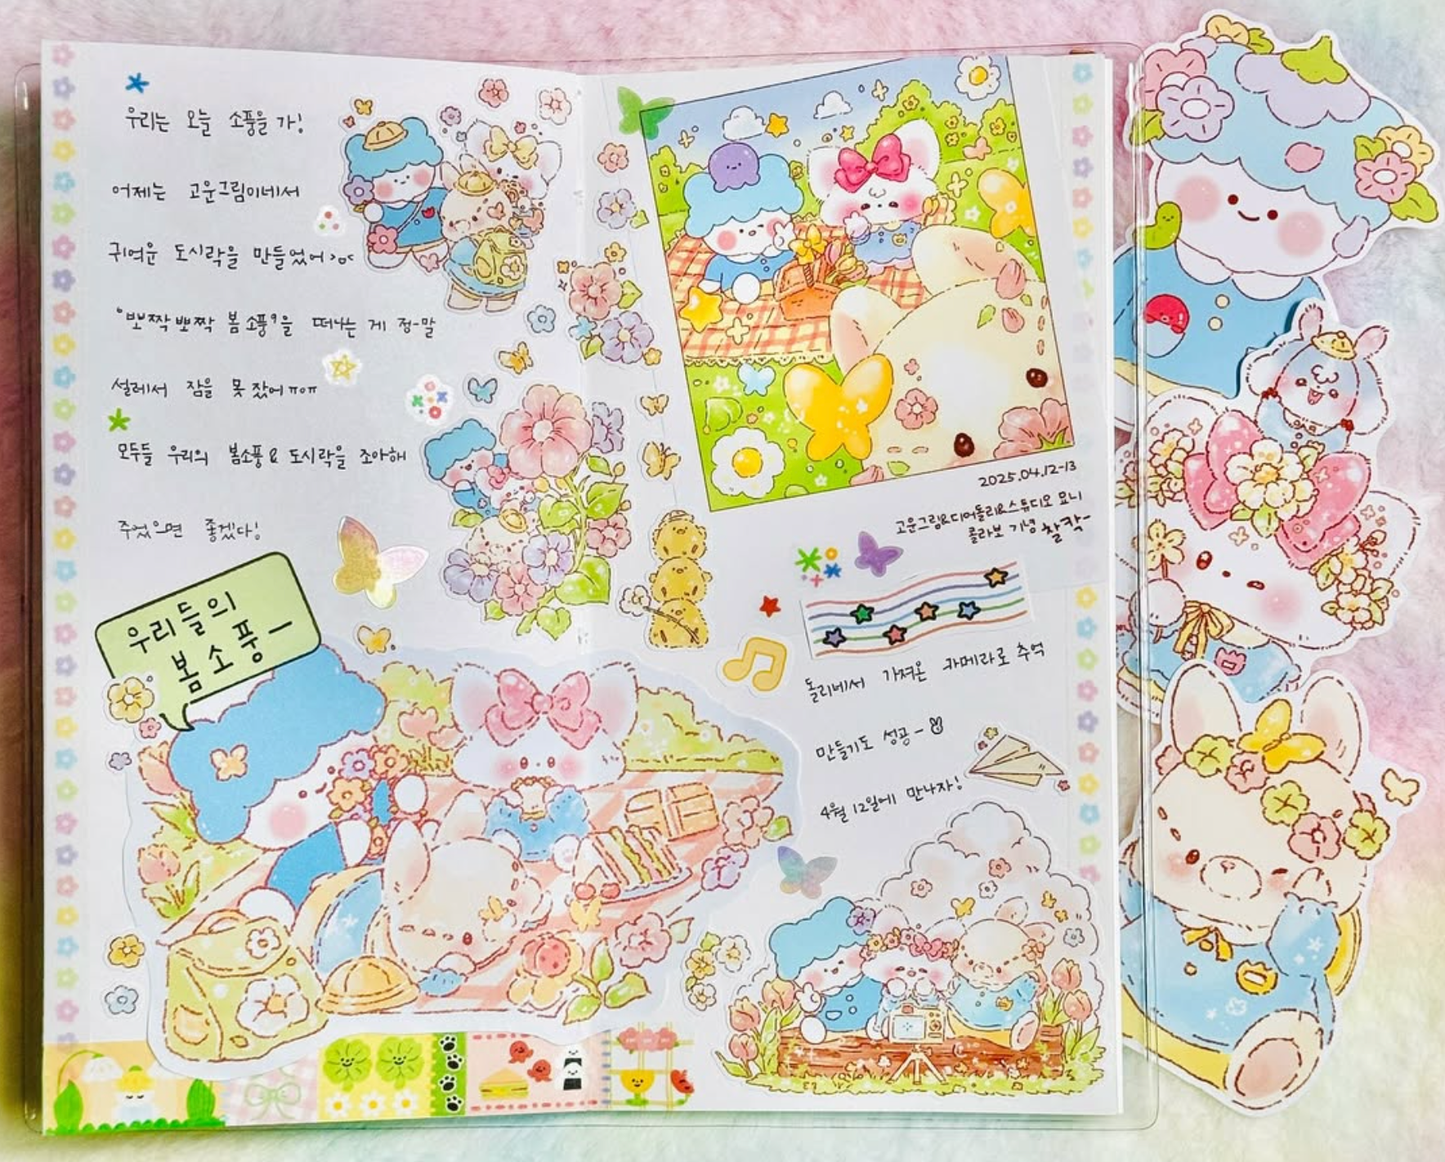 우리는 오늘 소풍을 가!
어제는 고운그림이네서
귀여운 도시락을 만들었어>o<
"뽀짝뽀짝 봄 소풍"을 떠나는 게 정-말
설레서 잠을 못 잤어ㅠoㅠ
모두들 우리의 봄소풍 & 도시락을 조아해
주었으면 좋겠다!
우리들의
봄 소풍-
2025.04.12-13
고운그림&디어돌리&스튜디오 모니
콜라보 기념 찰칵-
돌리네서 가져온 카메라로 추억
만들기도 성공-
4월 12일에 만나자!